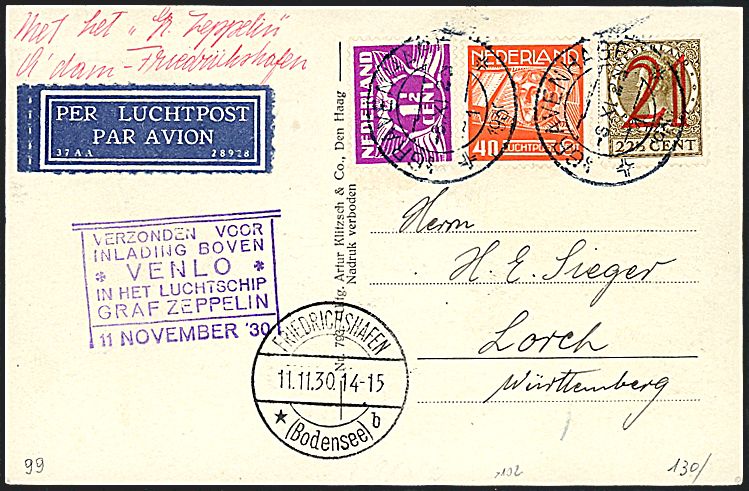 Met het „Gr. Zeppelin"
A'dam - Friedrichshafen
PER LUCHTPOST
PAR AVION
37AA 28928
NEDERLAND
½
CENT
NEDERLAND
40
LUCHTPOST
NEDERLAND
21
22½ CENT
VERZONDEN VOOR
INLADING BOVEN
* VENLO *
IN HET LUCHTSCHIP
GRAF ZEPPELIN
11 NOVEMBER '30
Artur Klitzsch & Co., Den Haag
Nadruk verboden
FRIEDRICHSHAFEN
11.11.30.14-15
* (Bodensee) b
Herrn
H. E. Sieger
Lorch
Württemberg
99
130/